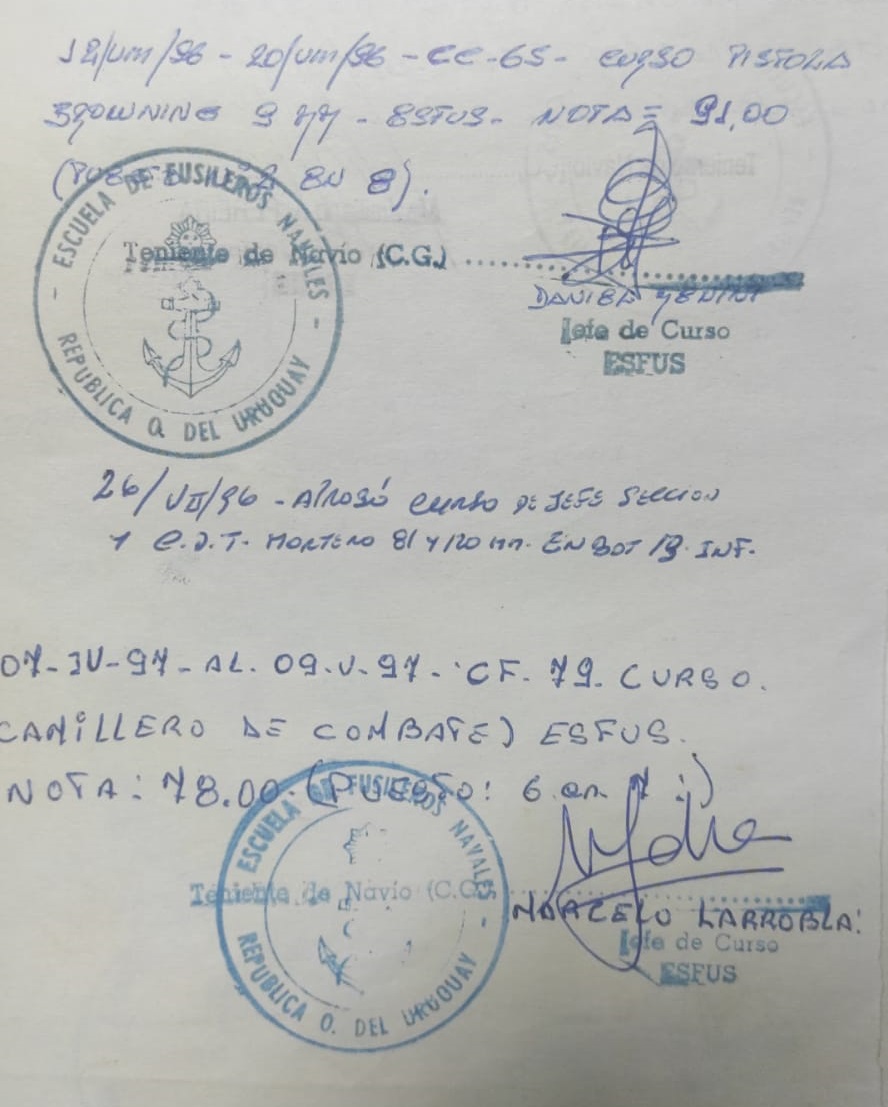 12/VIII/96 - 20/VIII/96 - CC-65 - CURSO PISTOLA
BROWNING 9 MM - ESFUS - NOTA = 91,00
EN 8).
ESCUELA DE FUSILEROS NAVALES
REPUBLICA O. DEL URUGUAY
Teniente de Navío (C.G.)
DANIEL
Jefe de Curso
ESFUS
26/VII/96 - APROBÓ CURSO DE JEFE SECCION
Y C.D.T. MORTERO 81 Y 120 MM. EN BAT 13 INF.
07-IV-97- AL. 09-V-97- CF. 79. CURSO.
CAMILLERO DE COMBATE) ESFUS.
NOTA: 78.00. (PUESTO: 6 en 7 :)
ESCUELA DE FUSILEROS NAVALES
REPUBLICA O. DEL URUGUAY
Teniente de Navío (C.G.)
MARCELO LARROBLA:
Jefe de Curso
ESFUS